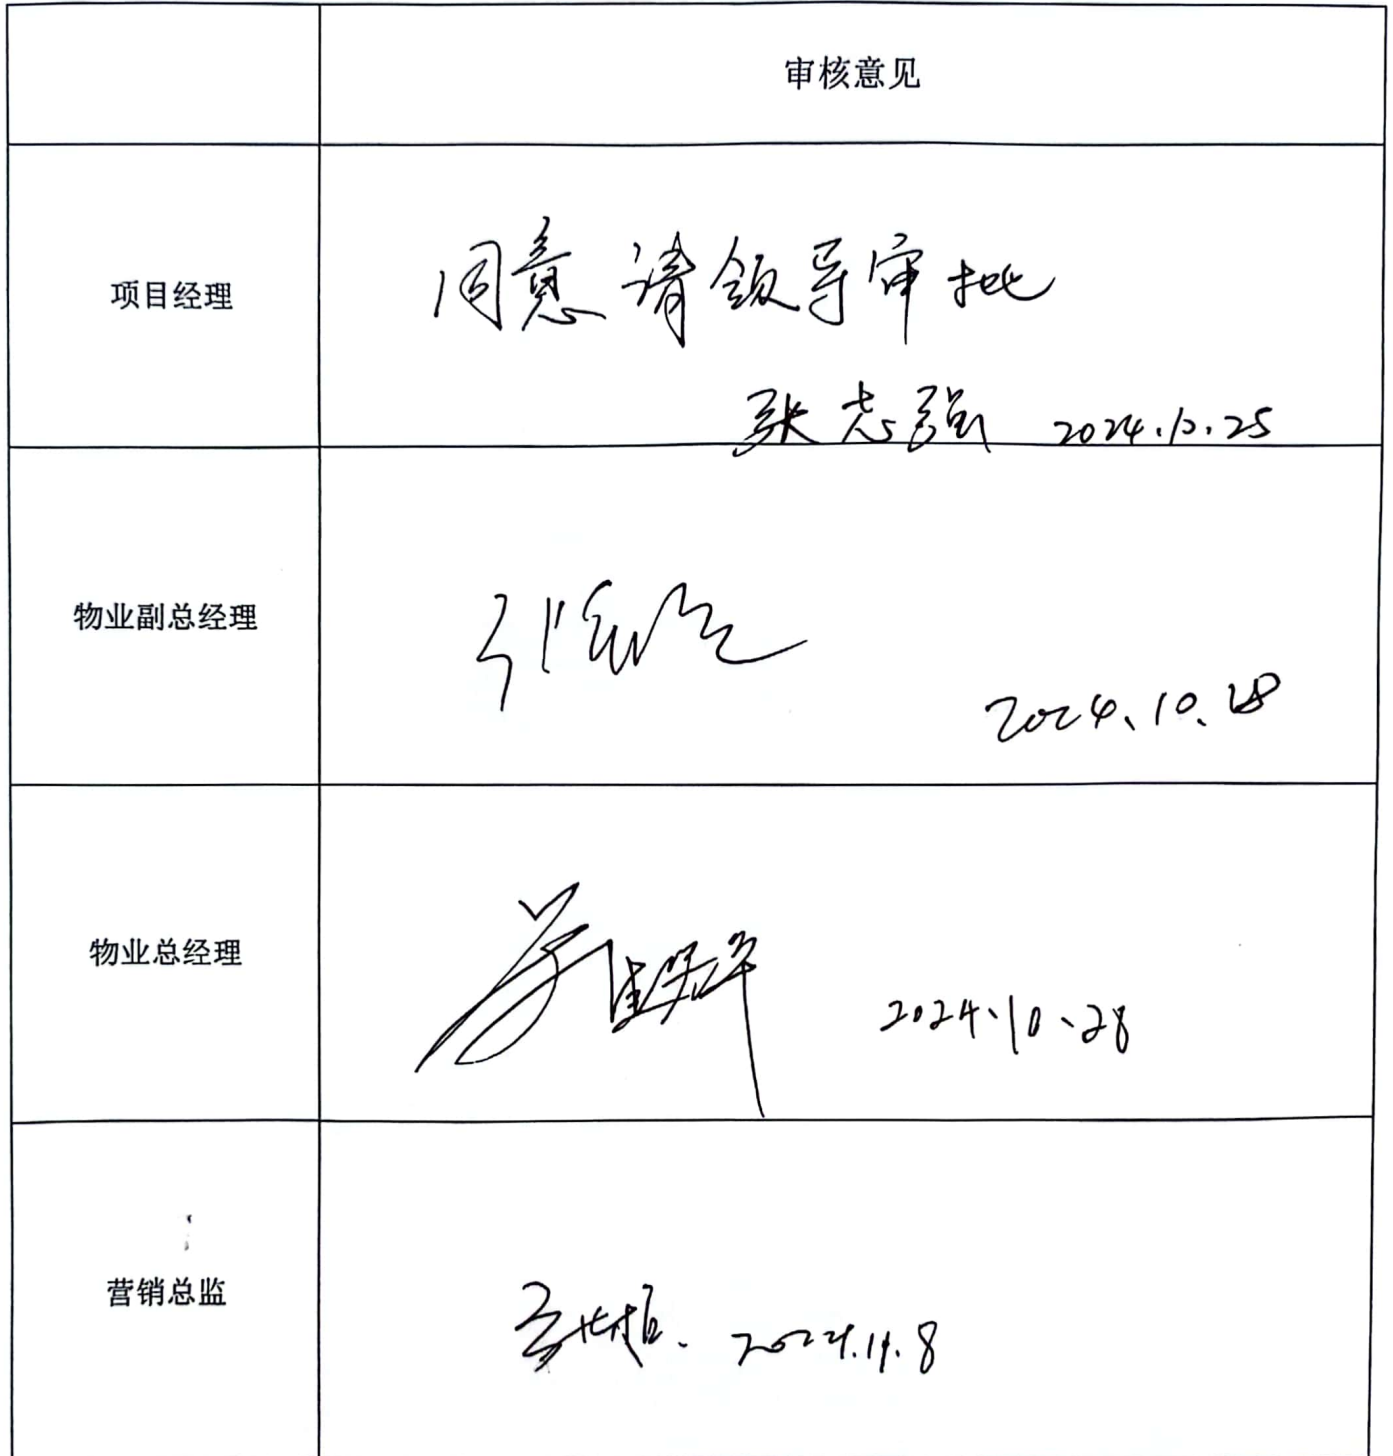 审核意见
项目经理
同意 请领导审批
张志强 2024.10.25
物业副总经理
2024.10.28
物业总经理
2024.10.28
营销总监
2024.11.8